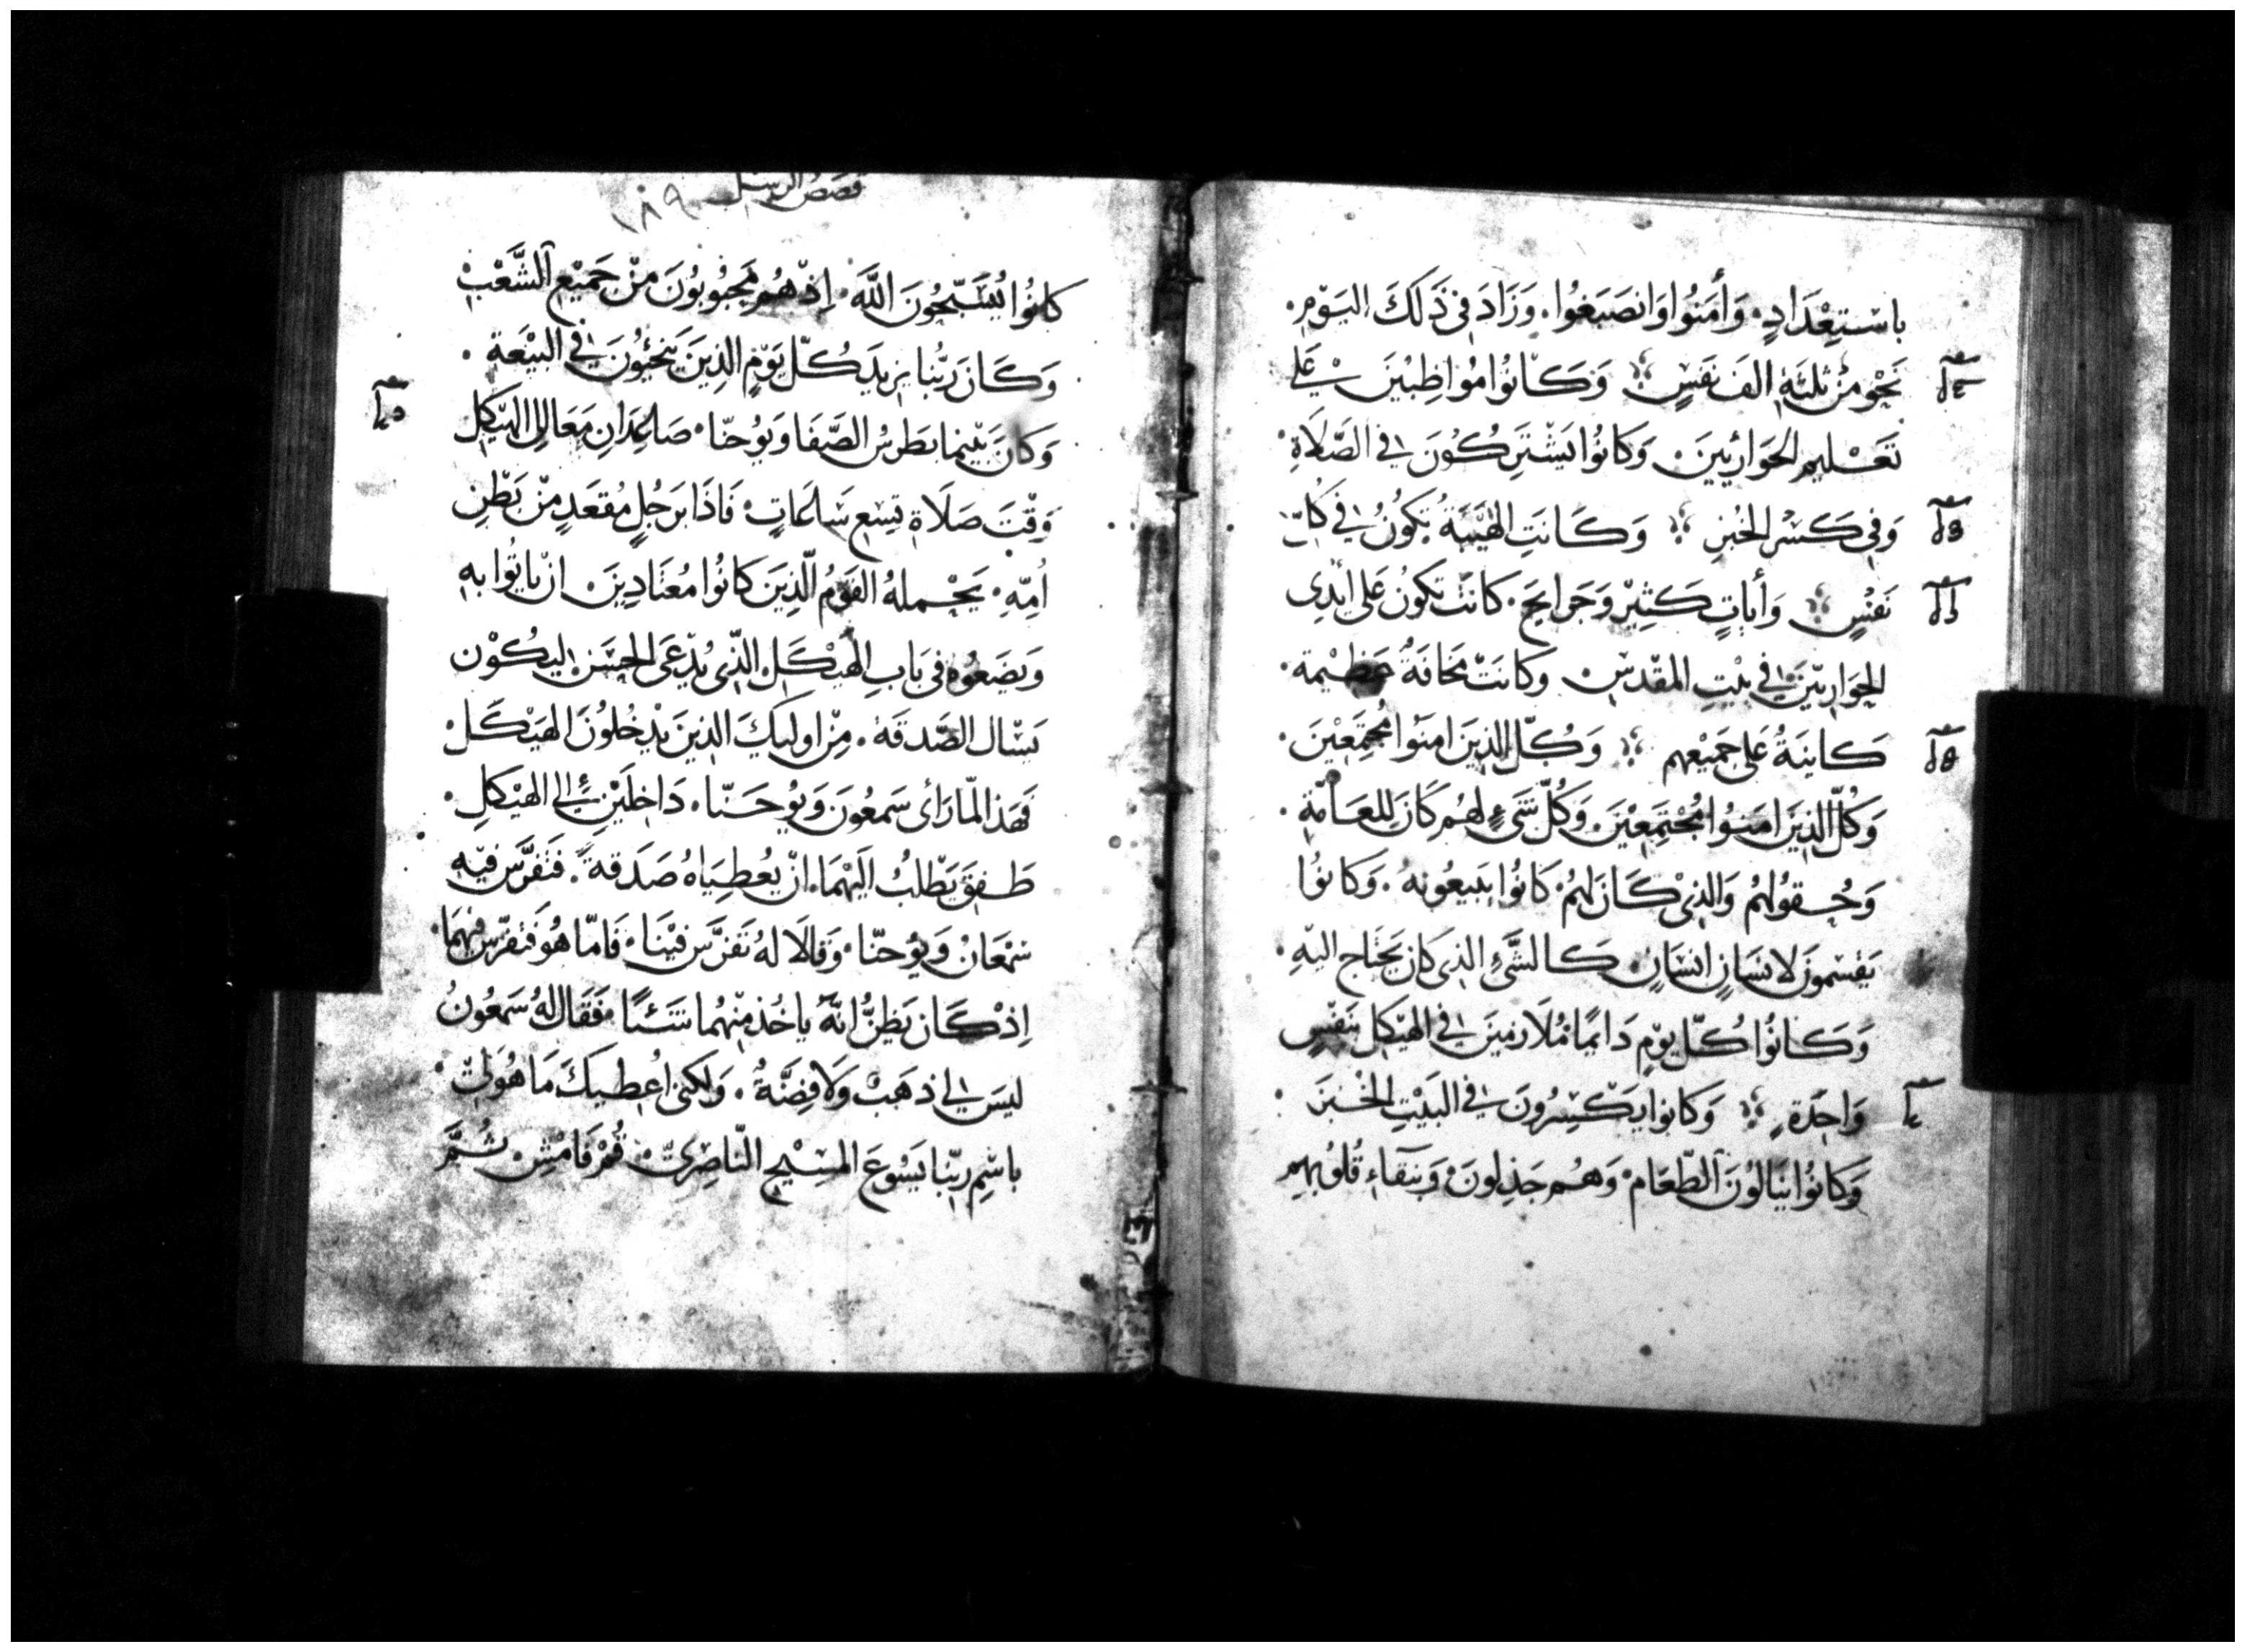 باسْتِعْدَادٍ. وَأَمَنُوا وَانصَبَغُوا. وَزَادَ فِي ذَلَكَ اليَوْمِ.
نَحْو مِنْ ثلثَةِ الف نَفَسٍ وَكَانُوا مُواظِبِيْنَ عَلى
تَعْليم الحَوَارِيّينَ. وَكانُوا يَشْتَرِكُونَ فِي الصَّلَاةِ
وَفِي كَسْرِ الخُبزِ وَكَانَتِ الهَيْبَةُ تكُونُ فِي كُلّ
نَفْسٍ وَأَياتٍ كَثِيْر وَجَرايحَ. كانَتْ تكونُ عَلى ايْدِي
الحَوَارِيّينَ فِي بيْتِ المقْدَسِ وَكانَتْ مَخافَةٌ عظيْمة.
كَاينَةُ عَلى جَمِيْعهِم وَكُلّ الذِينَ امَنُوا مُجْتَمِعْيْنَ.
وَكُلّ الذِينَ امَنُوا مُجْتَمِعْيْنَ. وَكُلّ شَيْءٍ لهُم كَانَ لِلعَامّةِ.
وَحُقُولهُمْ وَالذِيْ كَانَ لهُمْ كَانُوا يَبيعُونهُ. وَكانُوا
يَقْسمُونَ لانسَانٍ انسَانٍ كَالشَّيْءِ الذِي كَانَ يَحْتَاج اليْهِ.
وَكَانُوا كُلّ يَوْمٍ دَايمًا مُلَازمِينَ فِي الهَيْكل بنَفْسٍ
وَاحِدَةٍ وَكانوا يَكْسِرُونَ فِي البَيْتِ الخُبزَ
وَكَانُوا يَنَالُونَ الطّعَام وَهُم جَذِلونَ وَبنَقَاءِ قُلُوبهِم
قصَص الرسل ١٨٩
كانُوا يُسَبّحُونَ اللَّهَ. اِذْ هُم مَحْبُوبُونَ مِنْ جَمِيْع الشَّعْبْ
وَكَانَ رَبُّنا يزيدَ كُلّ يَوْمٍ الذِينَ يَنْجُونَ فِي البيْعَةِ.
وَكانَ بَيْنما بطرسُ الصَّفَا وَيُوحنّا صَاعِدَانِ مَعَا الِى الهَيْكلِ
وَقْتَ صَلَاةِ تِسْع سَاعَاتٍ فَاذَا برَجُلٍ مُقعَدٍ مِنْ بَطْنِ
اُمّهِ. يَحْملهُ القَوْمُ الّذِينَ كانُوا مُعْتَادِينَ انْ يأتُوا بهِ
وَيضَعُوهُ فِي بَابِ الهَيْكَلْ الذِي يُدْعَى الحَسَن ليكُوْن
يَسْال الصَّدقَةَ. مِنْ اوليكَ الذِينَ يَدْخُلونَ الهَيْكَلْ
فهَذا لمّا رَأى سَمعُونَ وَيُوحَنّا. دَاخِلَيْنِ إلى الهَيْكلِ.
طَفِقَ يَطْلبُ الَيْهُمَا. انْ يُعْطِيَاهُ صَدَقةً. فَتَفرَّسَ فيْهِ
سَمْعَانْ وَيُوحنّا وَقالَا لهُ تَفَرَّس فيْنَا. فَامّا هُوَ فتَفرّس فِيهُمَا.
اِذْ كَان يَظنُّ انّهُ ياخُذ مِنْهُما شَئًا فقَال لهُ سَمعُونُ
ليسَ لِي ذهَبٌ وَلَا فِضّةٌ. وَلكني اُعْطيكَ مَا هُوَ لِيْ.
باسْمِ ربّنا يَسُوعَ المسِيْح النّاصِريّ قُمْ فَامْشِ ثُمَّ